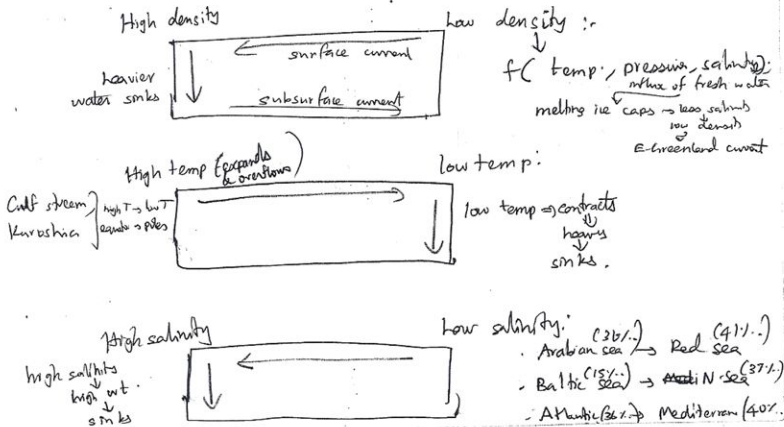 High density
Low density :-
surface current
f( temp., pressure, salinity).
influx of fresh water
heavier
water sinks
subsurface current
melting ice caps → less salinity
low density
E-Greenland current
High temp (expands
& overflows)
low temp:
Gulf stream,
Kuroshia
high T → low T
equator → poles
low temp ⇒ contracts
heavy
sinks.
High salinity
Low salinity:
high salinity
high wt.
sinks
. Arabian sea (36%..) → Red sea (41%..)
. Baltic (sea) (15%..) → N-sea (37%..)
. Atlantic (36%..) → Mediterran (40%..